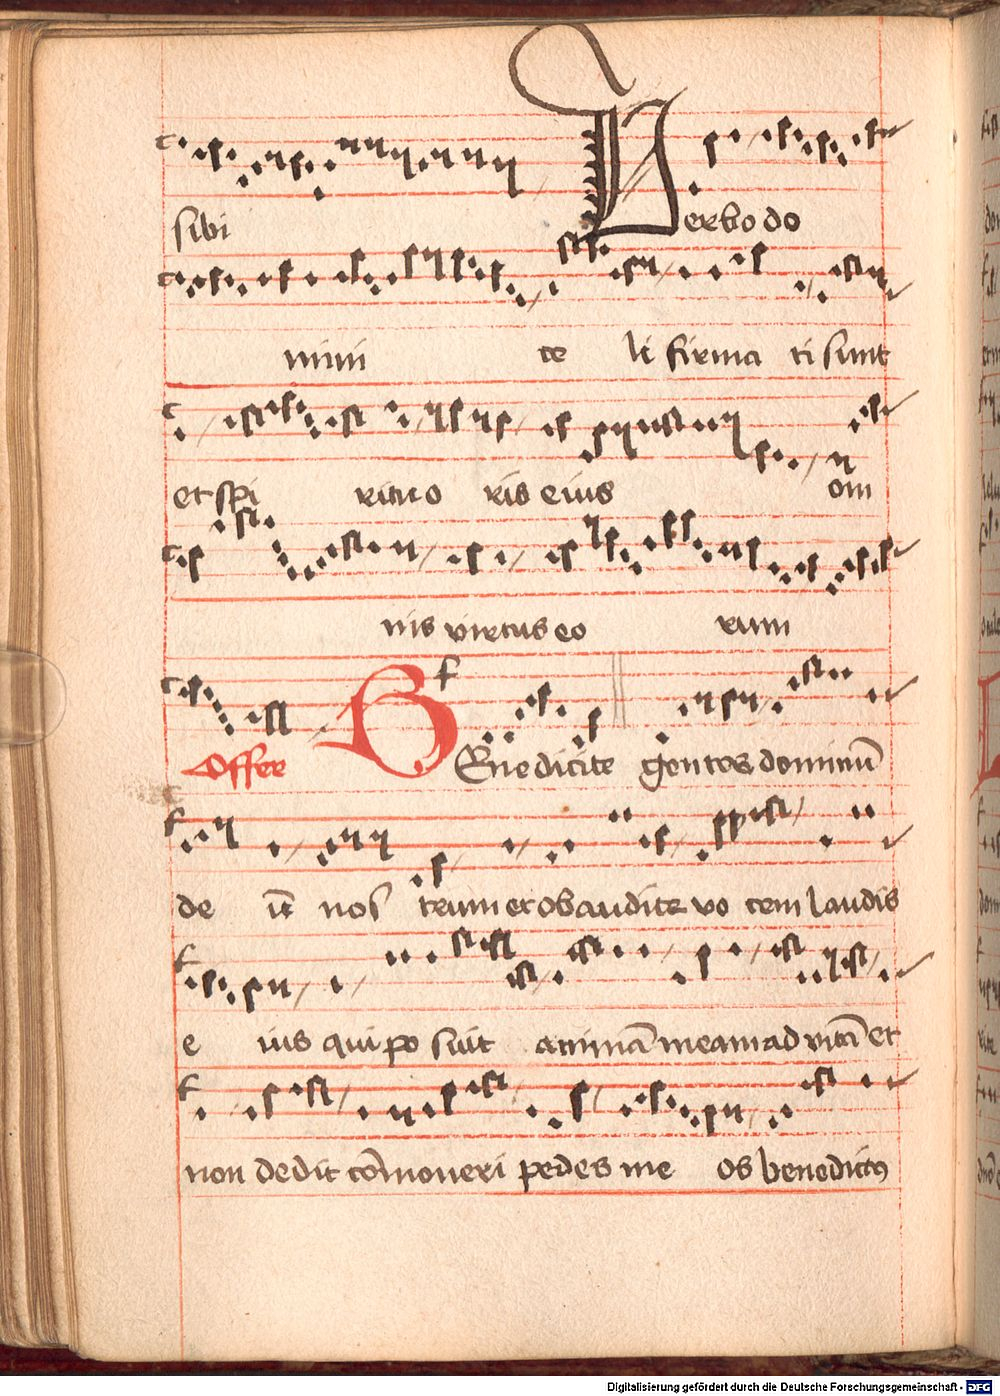 sibi Verbo do
mini ce li firma ti sunt
et spi ritu o ris eius om
nis virtus eo rum
Offer BEnedicite gentes dominū
de ū nos trum et obaudite vo cem laudis
e ius qui po suit animā meam ad vitā et
non dedit cōmoueri pedes me os benedictꝯ
Digitalisierung gefördert durch die Deutsche Forschungsgemeinschaft - DFG